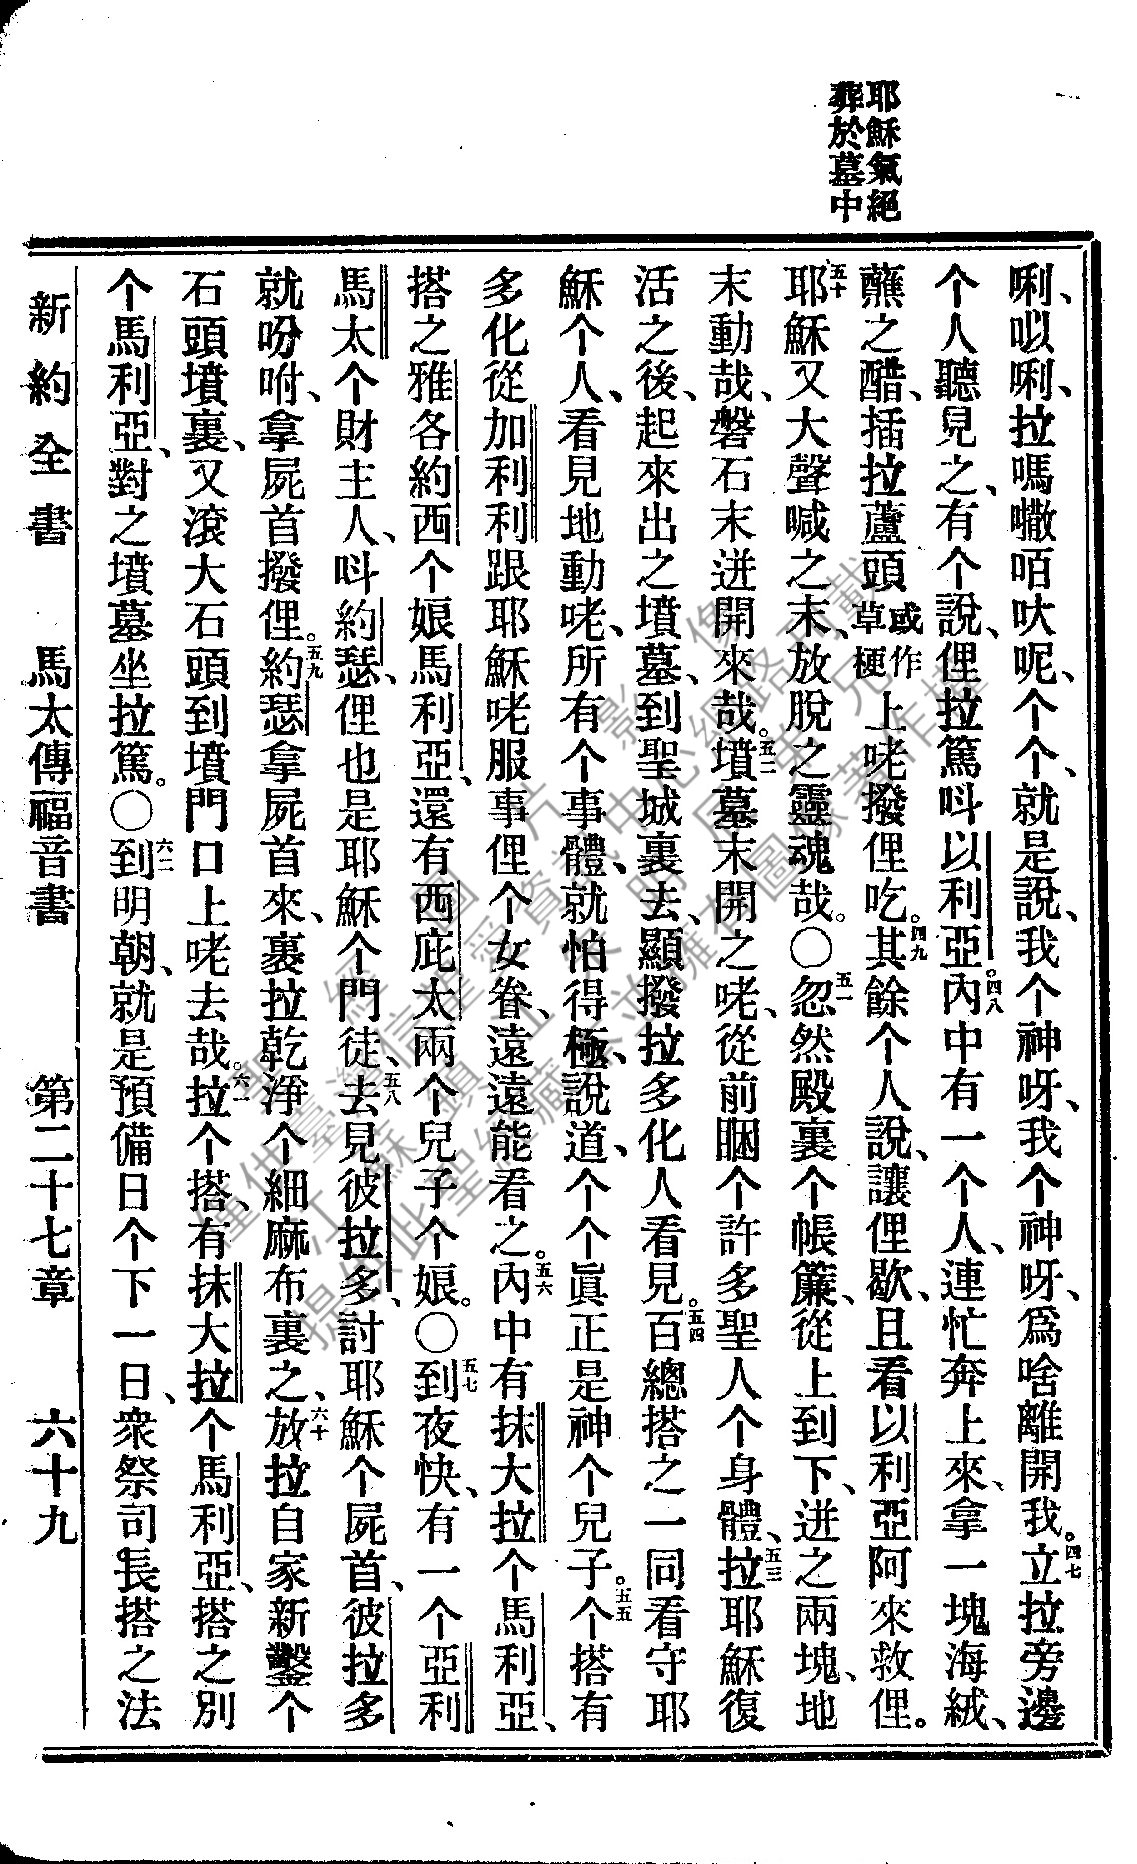 耶穌氣絕
葬於墓中
唎、㕥唎、拉嗎撒咟吙呢、个个、就是說、我个神呀、我个神呀、爲啥離開我。四七立拉旁邊
个人聽見之、有个說、俚拉篤呌以利亞。四八內中有一个人、連忙奔上來、拿一塊海絨、
蘸之醋、插拉蘆頭或作草梗上咾撥俚吃。四九其餘个人說、讓俚歇、且看以利亞阿來救俚。
五十耶穌又大聲喊之末、放脫之靈魂哉。〇五一忽然殿裏个帳簾、從上到下、迸之兩塊、地
末動哉、磐石末迸開來哉。五二墳墓末開之咾、從前睏个許多聖人个身體、五三拉耶穌復
活之後、起來出之墳墓、到聖城裏去、顯撥拉多化人看見。五四百總搭之一同看守耶
穌个人、看見地動咾、所有个事體、就怕得極、說道、个个眞正是神个兒子。五五个搭有
多化從加利利跟耶穌咾服事俚个女眷、遠遠能看之。五六內中有抹大拉个馬利亞、
搭之雅各約西个娘馬利亞、還有西庇太兩个兒子个娘。〇五七到夜快、有一个亞利
馬太个財主人、呌約瑟、俚也是耶穌个門徒、五八去見彼拉多、討耶穌个屍首、彼拉多
就吩咐、拿屍首撥俚。五九約瑟拿屍首來、裹拉乾淨个細麻布裏之、六十放拉自家新鑿个
石頭墳裏、又滾大石頭到墳門口上咾去哉。六一拉个搭、有抹大拉个馬利亞、搭之別
个馬利亞、對之墳墓坐拉篤。〇六二到明朝、就是預備日个下一日、衆祭司長搭之法
新約全書　馬太傳福音書　第二十七章　六十九